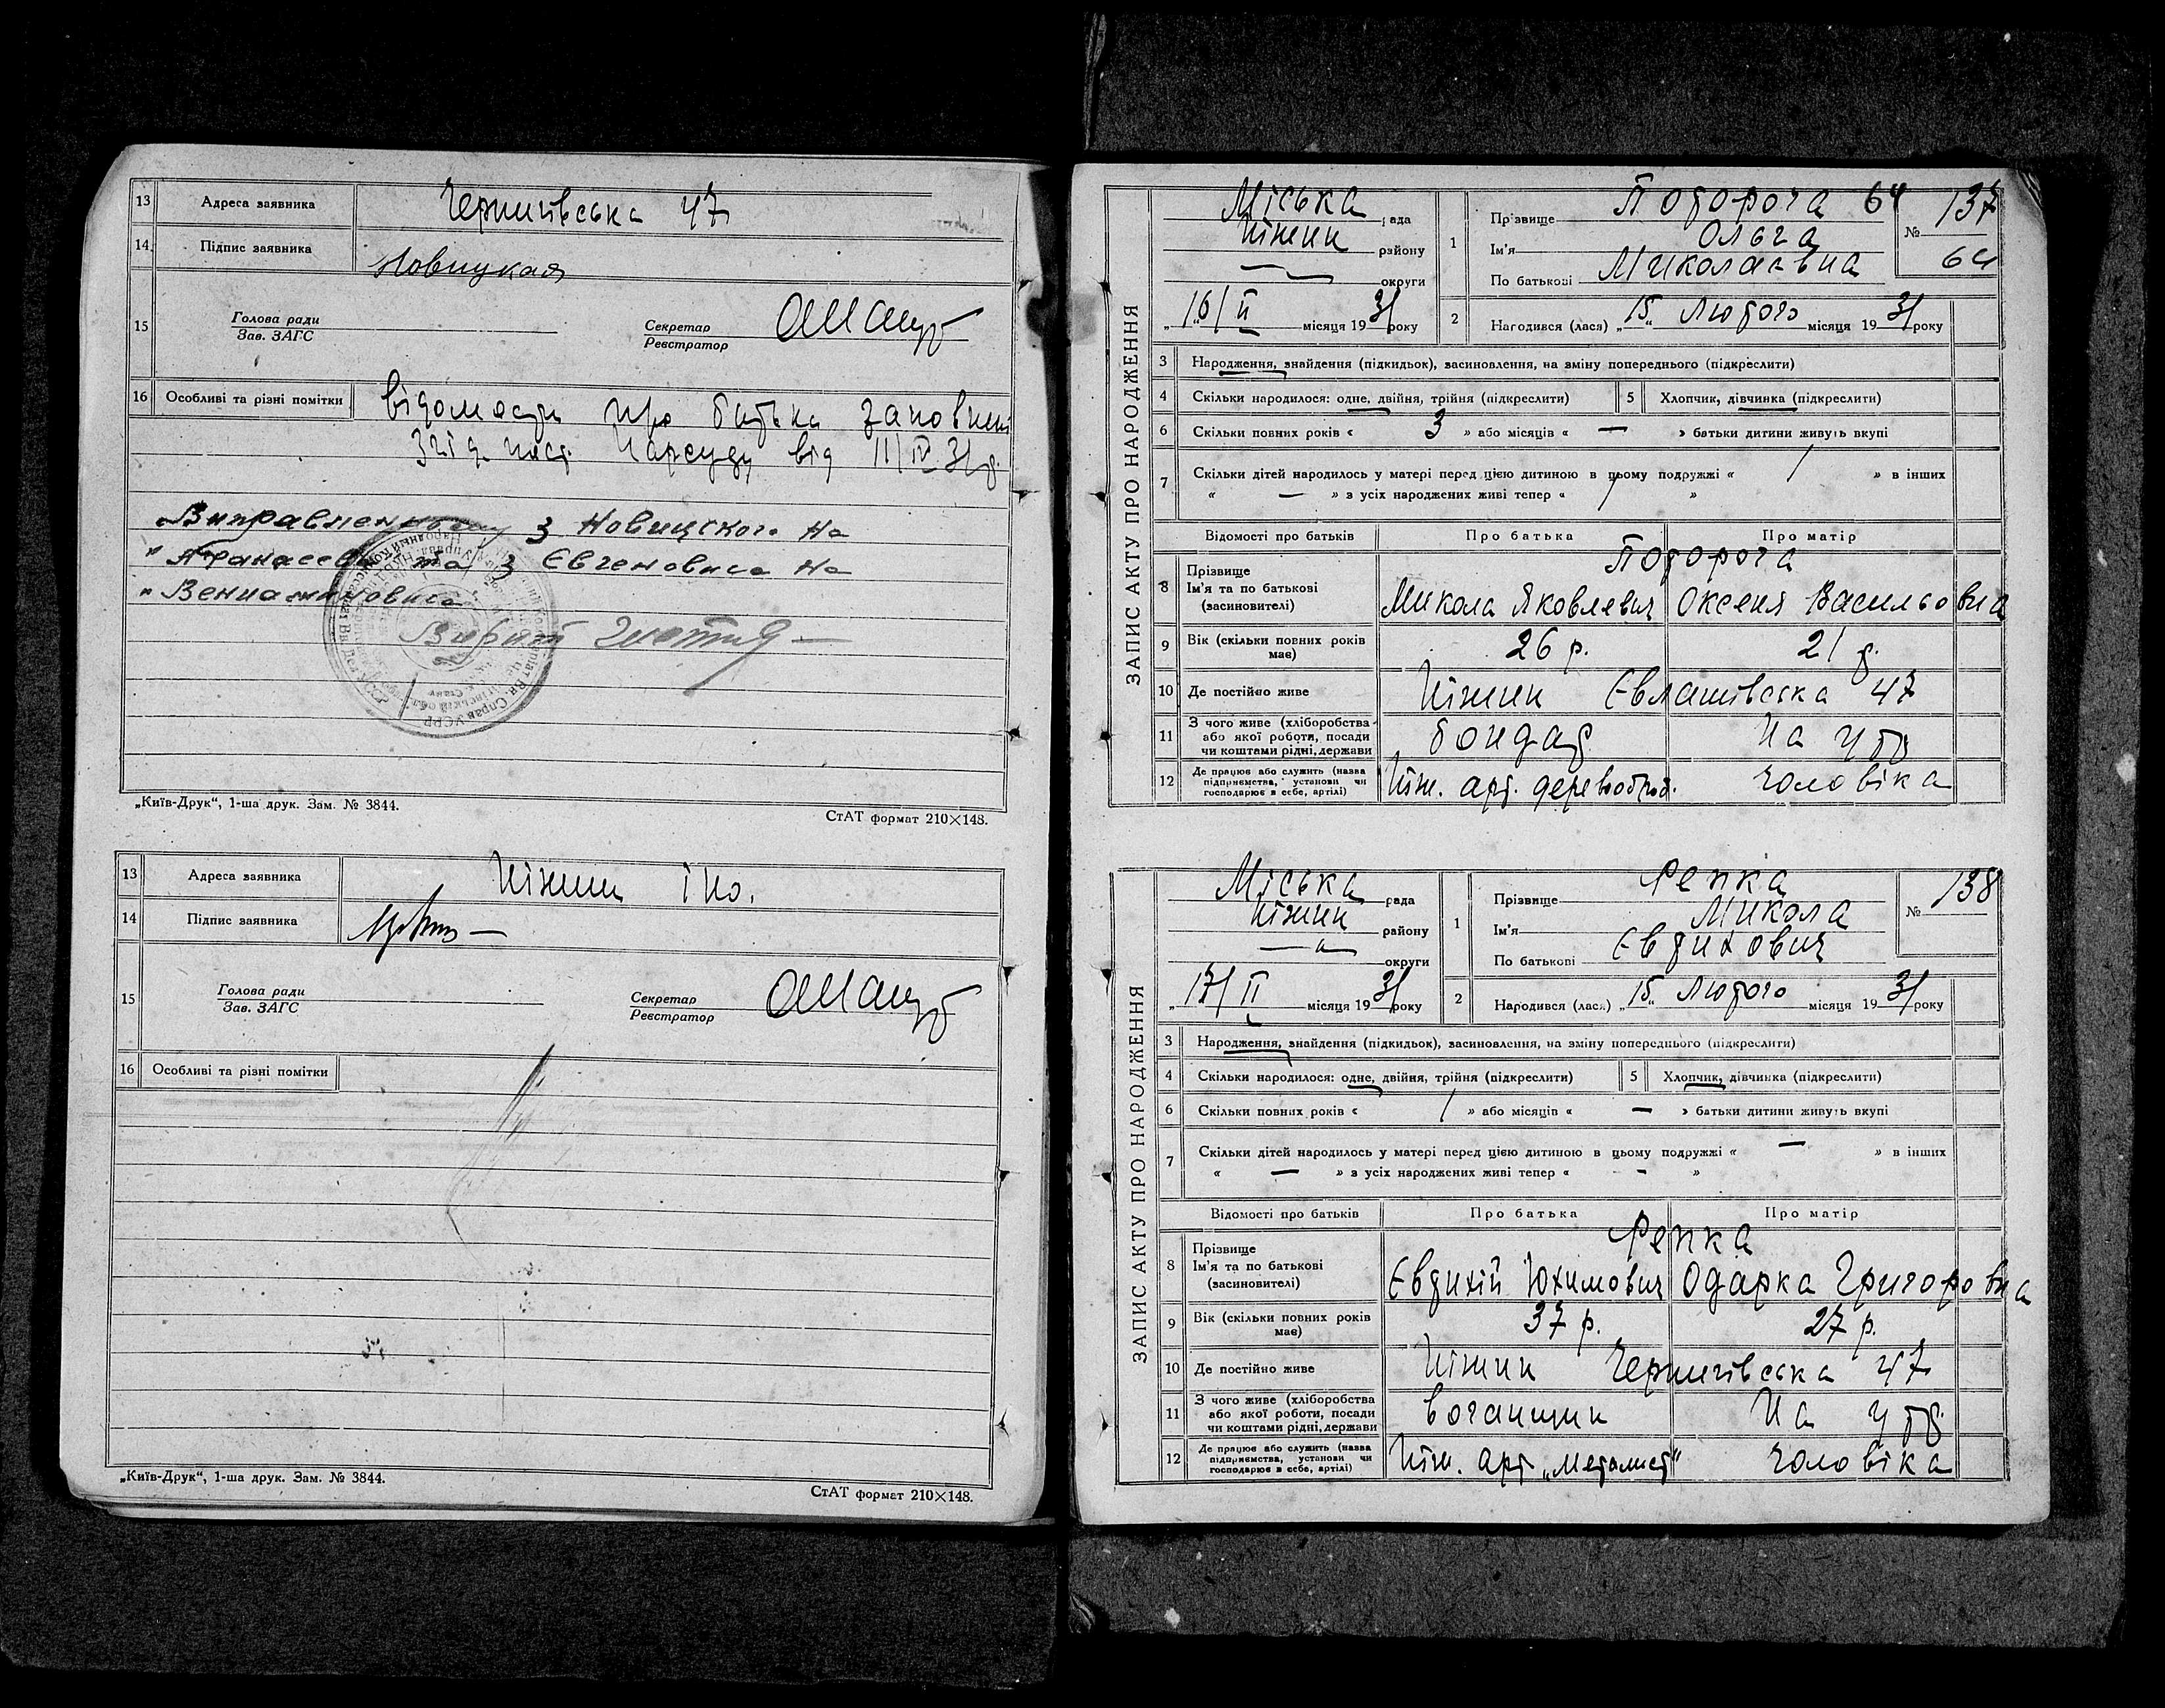 13 Адреса заявника Чернигівська 47
14. Підпис заявника Новицкая
15 Голова ради Зав. ЗАГС Секретар Реєстратор
16 Особливі та різні помітки відомости про батька заповнені
згід. пост. Нарсуду від 11/IV 31 р.
Виправленному з Новицского на
„ Афанасєва та з Євгеновича на
„ Вениаминовича
„Київ-Друк“, 1-ша друк. Зам. № 3844.
СтАТ формат 210×148.
13 Адреса заявника Ніжин
14 Підпис заявника
15 Голова ради Зав. ЗАГС Секретар Реєстратор
16 Особливі та різні помітки
„Київ-Друк“, 1-ша друк. Зам. № 3844.
СтАТ формат 210×148.
ЗАПИС АКТУ ПРО НАРОДЖЕННЯ
Міська рада
Ніжин району
— округи
„16/II місяця 1931 року
1 Прізвище Подорога 64
Ім'я Ольга
По батькові Миколаєвна
№ 137
64
2 Народився (лася) „15“ Лютого місяця 1931 року
3 Народження, знайдення (підкидьок), засиновлення, на зміну попереднього (підкреслити)
4 Скільки народилося: одне, двійня, трійня (підкреслити) 5 Хлопчик, дівчинка (підкреслити)
6 Скільки повних років « 3 » або місяців « — » батьки дитини живуть вкупі
7 Скільки дітей народилось у матері перед цією дитиною в цьому подружжі « 1 » в інших
« — » з усіх народжених живі тепер « 1 »
Відомості про батьків Про батька Про матір
Подорога
8 Прізвище Ім'я та по батькові (засиновителі) Микола Яковлевич Оксеня Васильовна
9 Вік (скільки повних років має) 26 р. 21 р.
10 Де постійно живе Ніжин Євлашівська 47
11 З чого живе (хліборобства або якої роботи, посади чи коштами рідні, держави бондар На утр.
12 Де працює або служить (назва підприємства, установи чи господарює в себе, артілі) Ніж. арт. деревооброб. чоловіка
ЗАПИС АКТУ ПРО НАРОДЖЕННЯ
Міська рада
Ніжин району
— округи
„17/II місяця 1931 року
1 Прізвище Репка
Ім'я Микола
По батькові Євтихович
№ 138
2 Народився (лася) „15“ Лютого місяця 1931 року
3 Народження, знайдення (підкидьок), засиновлення, на зміну попереднього (підкреслити)
4 Скільки народилося: одне, двійня, трійня (підкреслити) 5 Хлопчик, дівчинка (підкреслити)
6 Скільки повних років « 1 » або місяців « — » батьки дитини живуть вкупі
7 Скільки дітей народилось у матері перед цією дитиною в цьому подружжі « — » в інших
« — » з усіх народжених живі тепер « - »
Відомості про батьків Про батька Про матір
Репка
8 Прізвище Ім'я та по батькові (засиновителі) Євтихій Юхимович Одарка Григоровна
9 Вік (скільки повних років має) 37 р. 27 р.
10 Де постійно живе Ніжин Чернигівська 47
11 З чого живе (хліборобства або якої роботи, посади чи коштами рідні, держави воганщик На утр.
12 Де працює або служить (назва підприємства, установи чи господарює в себе, артілі) Ніж. арт „Металист“ чоловіка